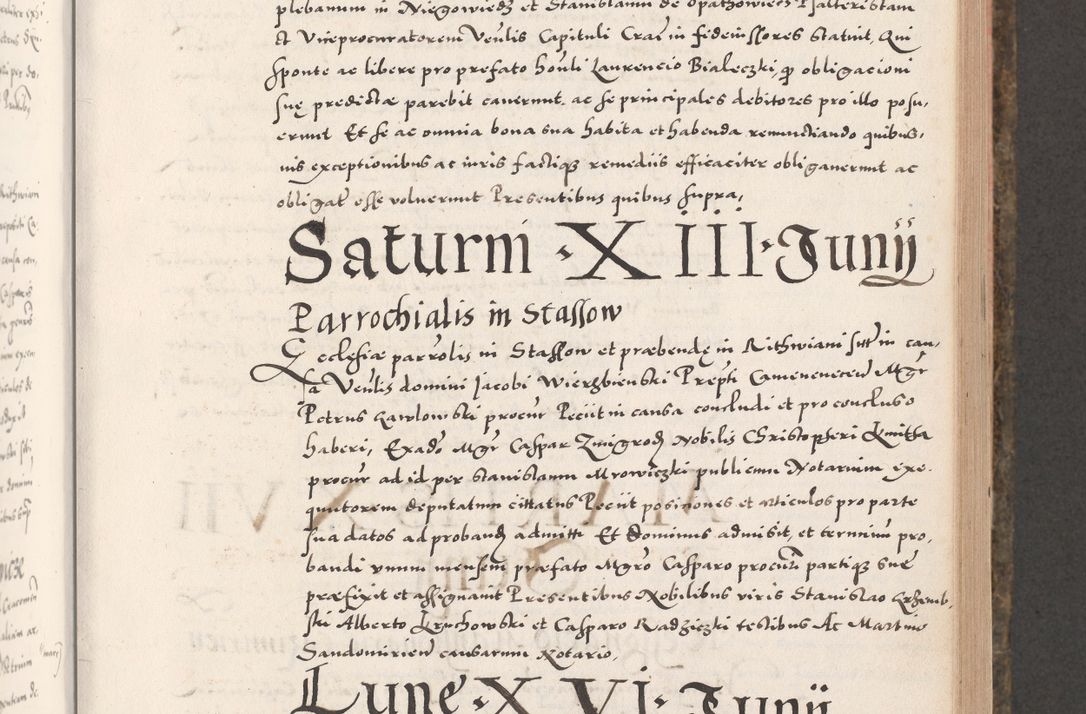 plebanum in Niegowiedz et Stanislaum de Opathowiecz Psalteristam
et Viceprocuratorem Venlis Capituli Crac in fideiussores statuit, Qui
sponte ac libere pro prefato honli Laurencio Bialeczki, qp obligacioni
suę predictae parebit cauerunt, ac se principales debitores pro illo posu,
erunt Et se ac omnia bona sua habita et habenda renunctiando quibus,
uis exceptionibus ac iuris factiqz remediis efficaciter obligauerunt ac
obligat esse voluerunt Presentibus quibus supra,
Saturni · XIII · Junij
Parrochialis in Stassow
Ecclesiae parrolis in Stassow et praebendę in Rithwiani sitt in cau,
sa Venlis domini Jacobi Wierzbienski Prepti Camenenecen Mgr
Petrus Gawlowski procur Peciit in causa concludi et pro concluso
haberi, Exado Mgr Caspar Zmigrodz Nobilis Christopheri Kmitha
procur ad id per Stanislaum Mrowiczki publicum Notarium exe,
quutorem deputatum cittatus Peciit posiciones et articulos pro parte
sua datos ad probandz admitti Et Dominus admisit, et terminum pro,
bandi vnum mensem praefato Mgro Casparo procuri partiqz suę
praefixit et assignauit Presentibus Nobilibus viris Stanislao Krzemb,
ski Alberto Kruchowski et Casparo Radziczki testibus Ac Martino
Sandomirien causarum Notario,
Lune · XVI · Junij